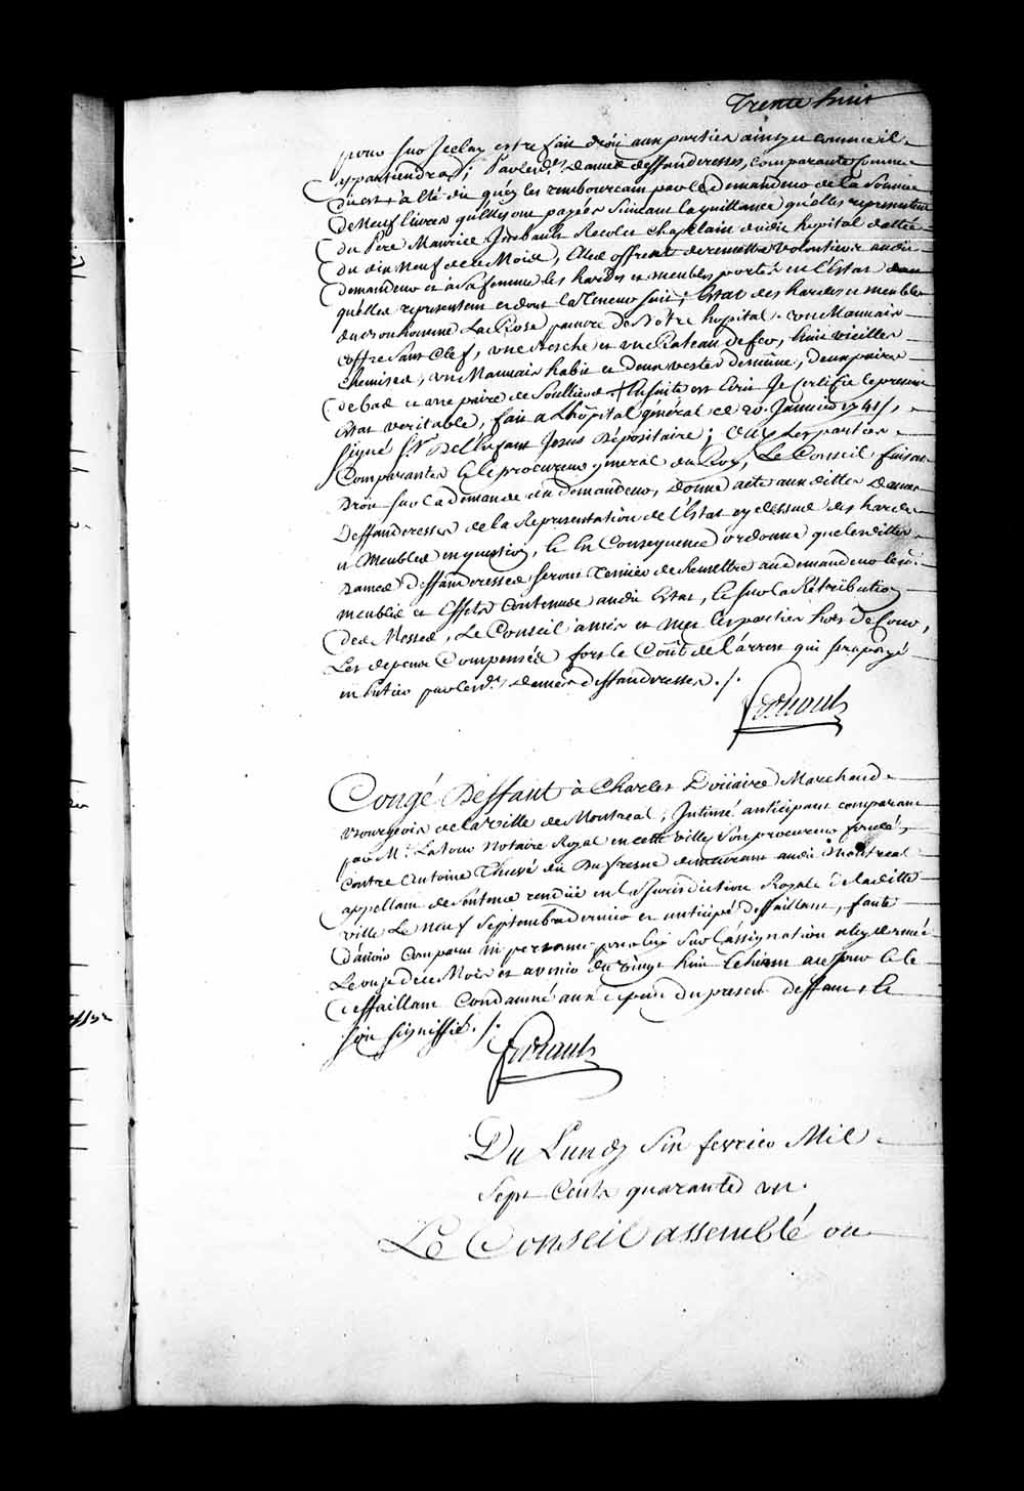 Trente huit
pour sur Iceluy estre fait droit aux parties ainsy et comme il
appartiendra; Par les dt. dames deffenderesses, comparantes comme
dit est a été dit qu'en les remboursant par le demandeur de la somme
de Neuf livres qu'elles ont payées suivant la quittance qu'elles representent
du Pere Maurice Recolet chapelain dudit hopital dattée
du dix Neuf de ce Mois, Elles offrent de remettre volontiers audit
demandeur et à sa femme les hardes et meubles portés en l'Estat
qu'elles representent et dont la Teneur suit; Estat des hardes et meubles
du bonhomme La Rose pauvre de Notre hopital. un Mauvais
coffre sans clef, une et un chateau de feu, huit vieilles
chemises, un Mauvais habit et deux vestes de même, deux paires
de bas et une paire de soulliers Ensuite est Ecrit Je certifie le present
Estat veritable, fait a L'hôpital général ce 20 Janvier 1741,
signé Sr. De L'Enfant Jesus Dépositaire; Ouy les parties
Comparantes Et le procureur general du Roy, Le Conseil faisant
Droit sur la demande du demandeur, donne acte aux dittes dames
Deffenderesses de la Representation de l'Estat cy dessus des hardes
et Meubles en question, Et En Consequence ordonne que lesdittes
Dames Deffenderesses seront Tenües de Remettre au demandeur les
meubles et Effets Contenus audit Estat, Et sur la Rétribution
des Messes, Le Conseil a mis et met les parties hors de Cour,
Les depens Compensés fors le Coût de l'arrest qui sera payé
en Entier par les d. dames deffenderesses ./.
Congé Deffaut à Charles Doüaire Marchand
Bourgeois de la Ville de Montreal, Intimé anticipant comparant
par Me. Latour Notaire Royal en cette Ville son procureur fondé,
contre Antoine dit Dufresne demeurant audit Montreal
appellant de Sentence rendüe en la Jurisdiction Royale de laditte
ville Le neuf Septembre dernier et anticipé deffaillant, faute
d'avoir comparu ny personne pour luy sur l'assignation a luy donnée
Le onze de ce Mois et avenir du vingt huit Echéant a ce jour Et le
deffaillant Condamné aux dépens du present deffaut, Et
soit signiffié ./.
Du Lundy Six fevrier Mil
Sept Cents quarante un.
Le Conseil assemblé ou